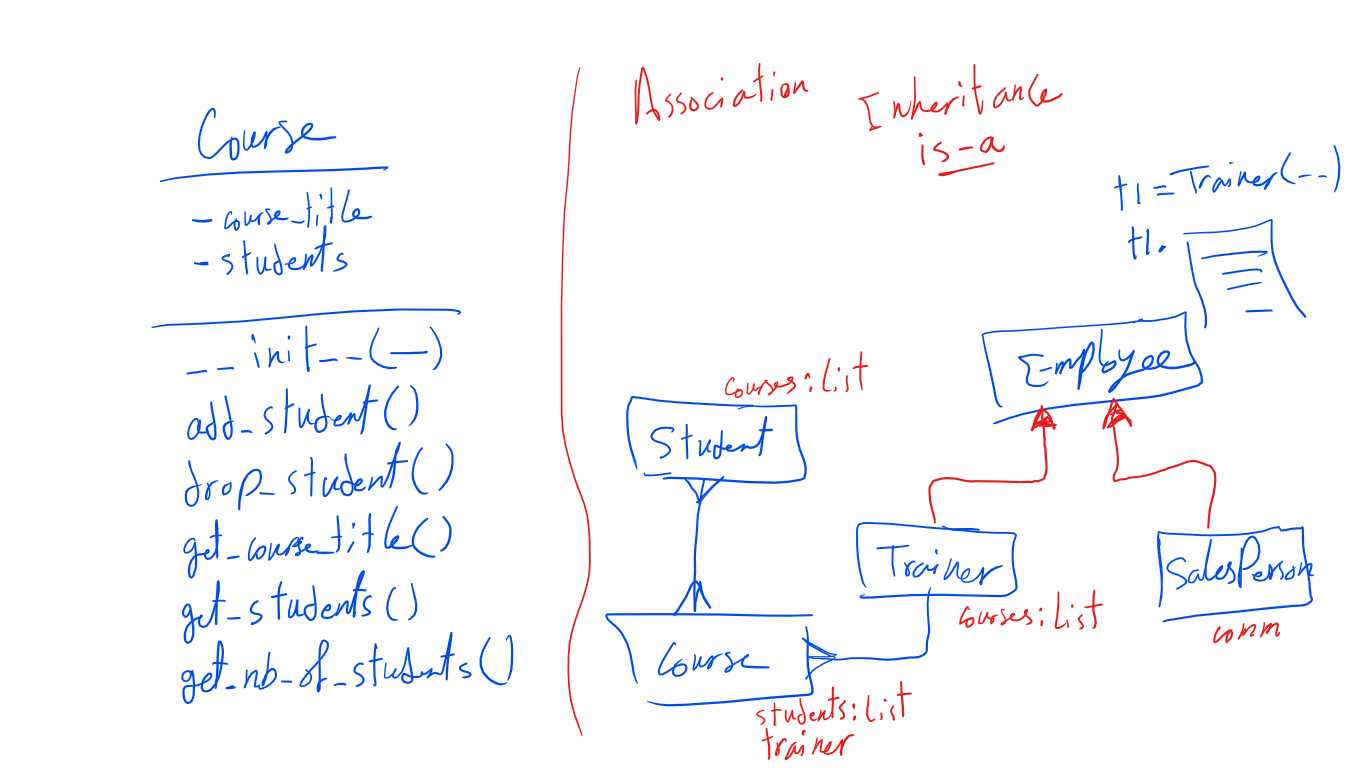 Course
- course_title
- students
__init__(—)
add_student()
drop_student()
get_course_title()
get_students()
get_nb_of_students()
Association
Inheritance
is-a
t1 = Trainer(--)
t1.
Employee
courses: List
Student
Trainer
courses: List
SalesPerson
comm
Course
students: List
trainer